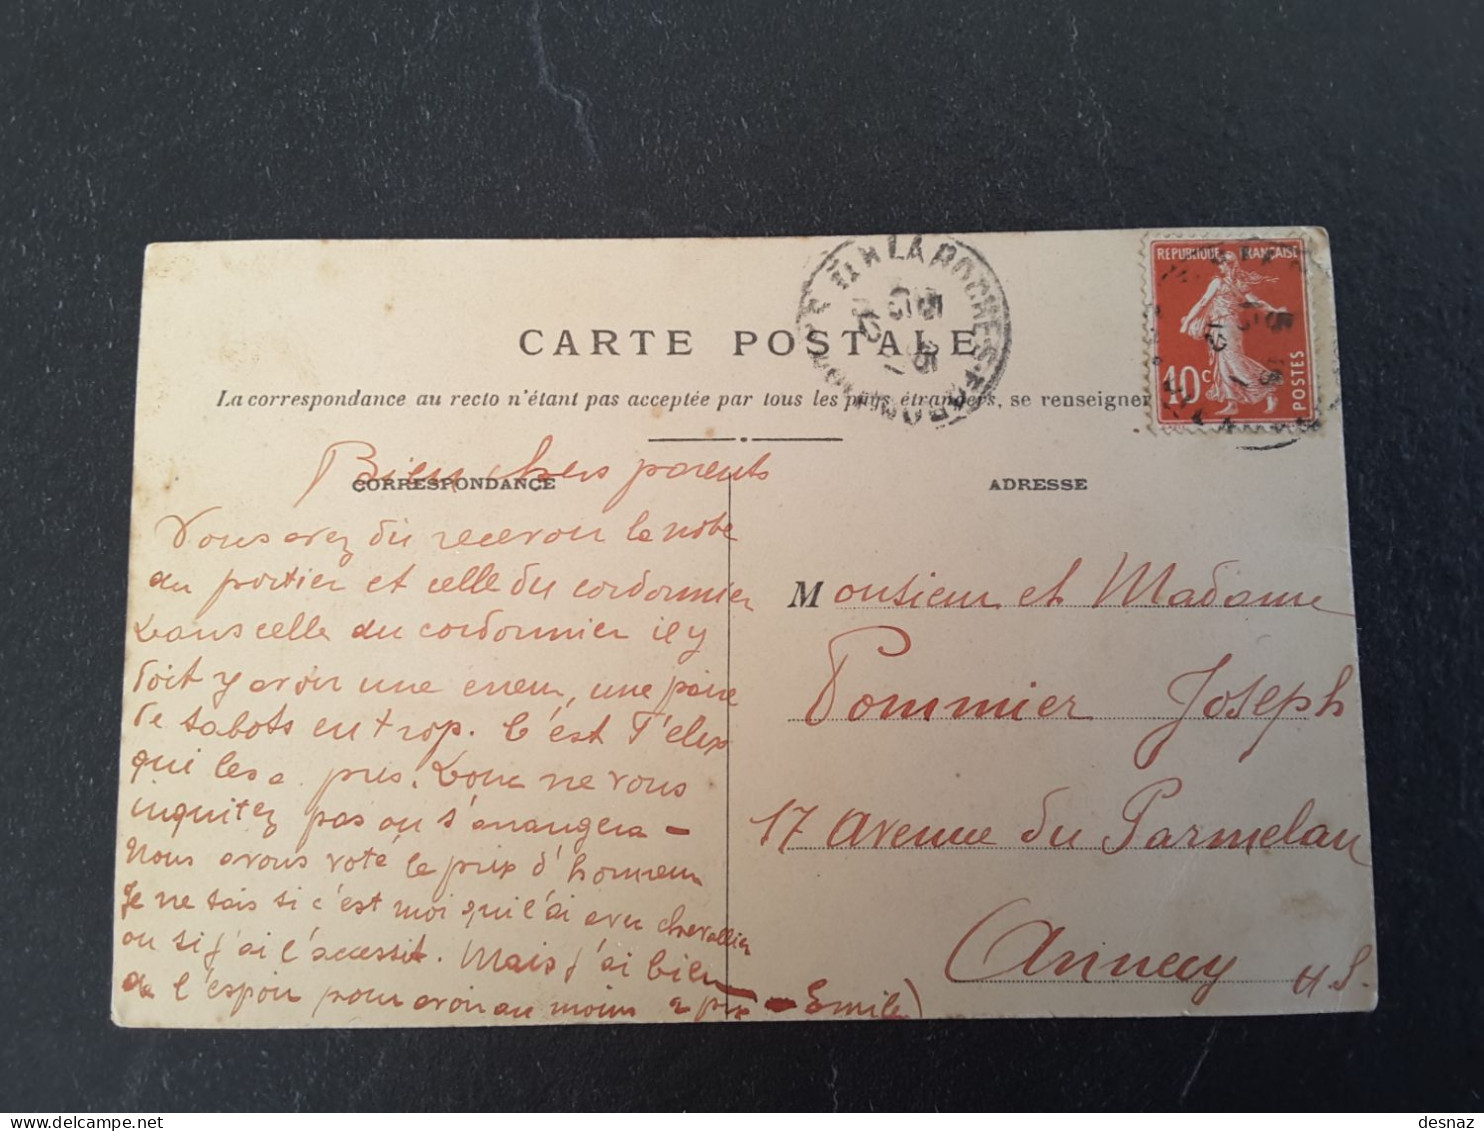 LA ROCHE-S-FORON
REPUBLIQUE FRANÇAISE
10c
POSTES
CARTE POSTALE
La correspondance au recto n'étant pas acceptée par tous les pays étrangers, se renseigner
CORRESPONDANCE
Bien chers parents
Vous avez dû recevoir la note
du portier et celle du cordonnier
Dans celle du cordonnier il y
doit y avoir une erreur, une paire
de sabots en trop. C'est
qui les a pris. Donc ne vous
inquitez pas on s'arrangera -
Nous avons voté le prix d'honneur
Je ne sais si c'est moi qui l'ai avec chevallier
ou si j'ai l'accessit. Mais j'ai bien
de l'espoir pour avoir au moins 2 prix - Emile
ADRESSE
Monsieur et Madame
Pommier Joseph
17 Avenue du Parmelan
Annecy H S.
desnaz